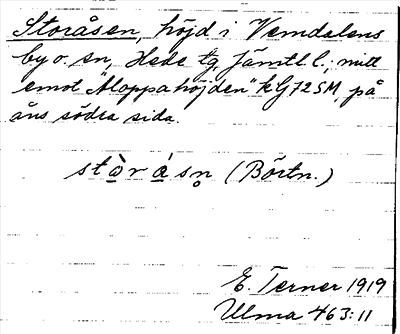 Storåsen, höjd i Vemdalens
by o. sn, Hede tg, Jämtl l.; mitt
emot "Aloppahöjden" k G 72 SM, på
åns södra sida.
stɑ̀r ásn̥ (Börtn.)
E. Terner 1919
Ulma 463:11